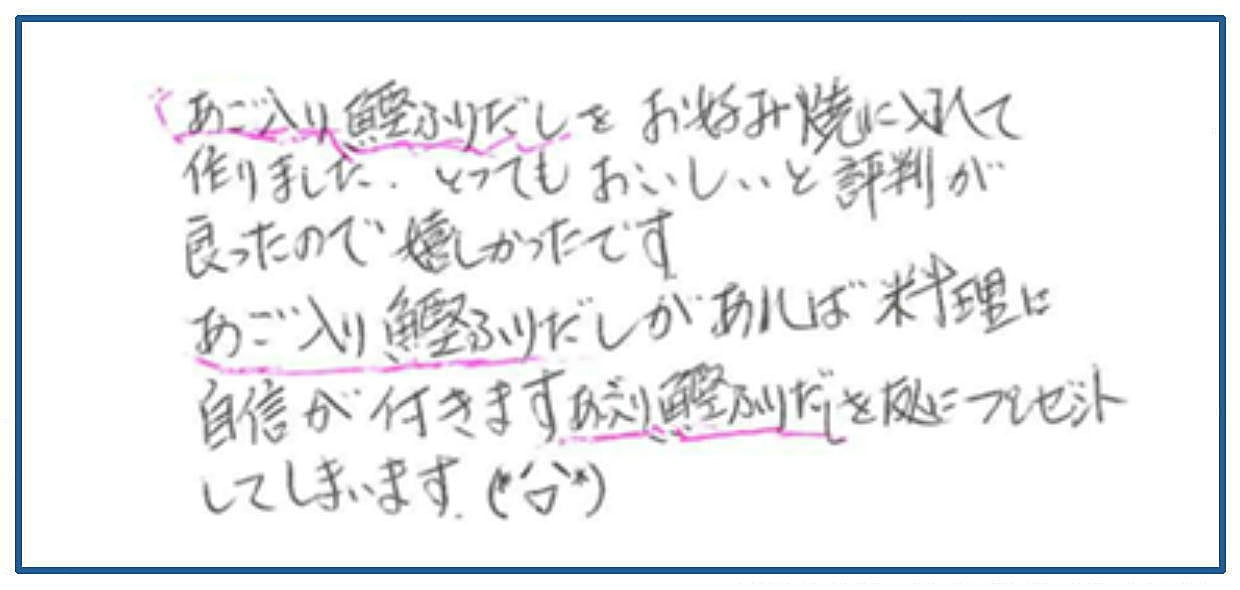 あご入り鰹ふりだしを お好み焼に入れて
作りました. とっても おいしいと 評判が
良ったので 嬉しかったです
あご入り鰹ふりだしが あれば 料理に
自信が 付きます あご入り鰹ふりだしを 友にプレゼント
してしまいます. (*'▽'*)